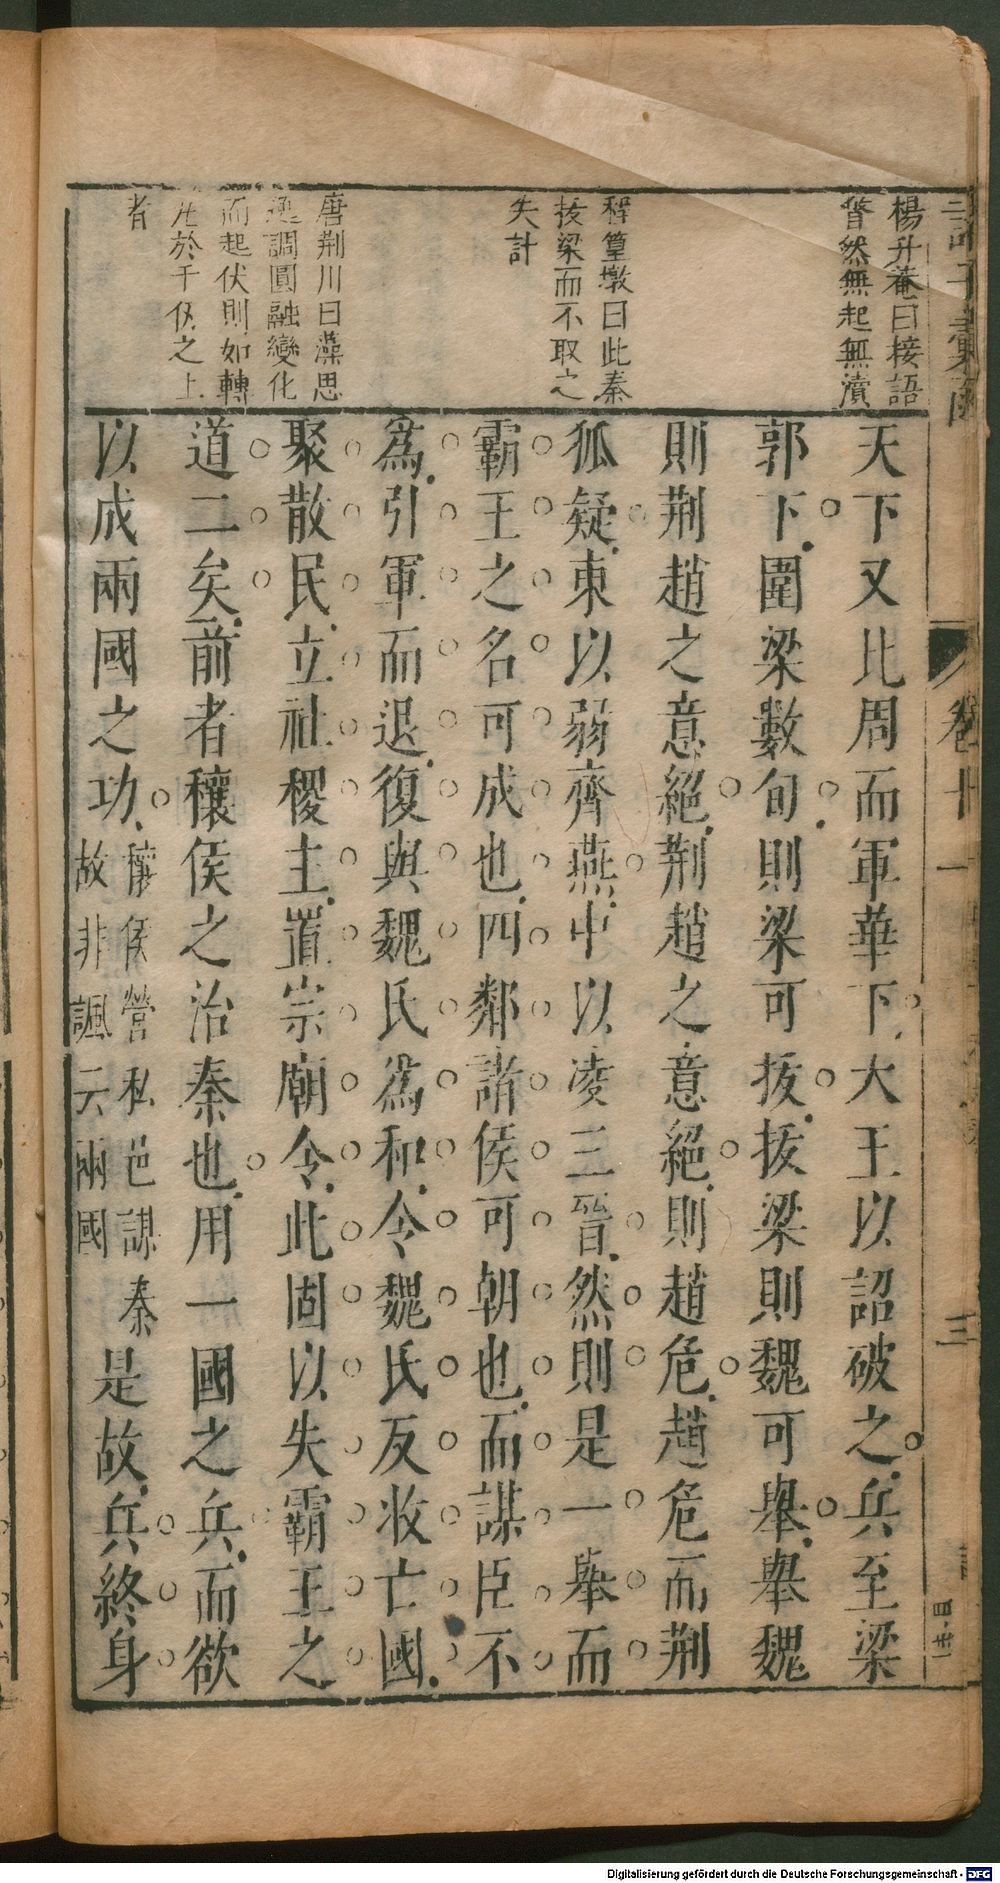 楊升菴曰接語
聱然無起無瀆
程篁墩曰此秦
拔梁而不取之
失計
唐荆川曰藻思
逸調圓融變化
而起伏則如轉
丸於千仭之上
者
天下又比周而軍華下大王以詔破之兵至梁
郭下圍梁數旬則梁可拔拔梁則魏可舉舉魏
則荆趙之意絕荆趙之意絕則趙危趙危而荆
狐疑東以弱齊燕中以凌三晉然則是一舉而
霸王之名可成也四鄰諸侯可朝也而謀臣不
爲引軍而退復與魏氏爲和令魏氏反收亡國
聚散民立社稷主置宗廟令此固以失霸王之
道二矣前者穰侯之治秦也用一國之兵而欲
以成兩國之功穰侯營私邑謀秦故非諷云兩國是故兵終身
卷十一
三
Digitalisierung gefördert durch die Deutsche Forschungsgemeinschaft - DFG